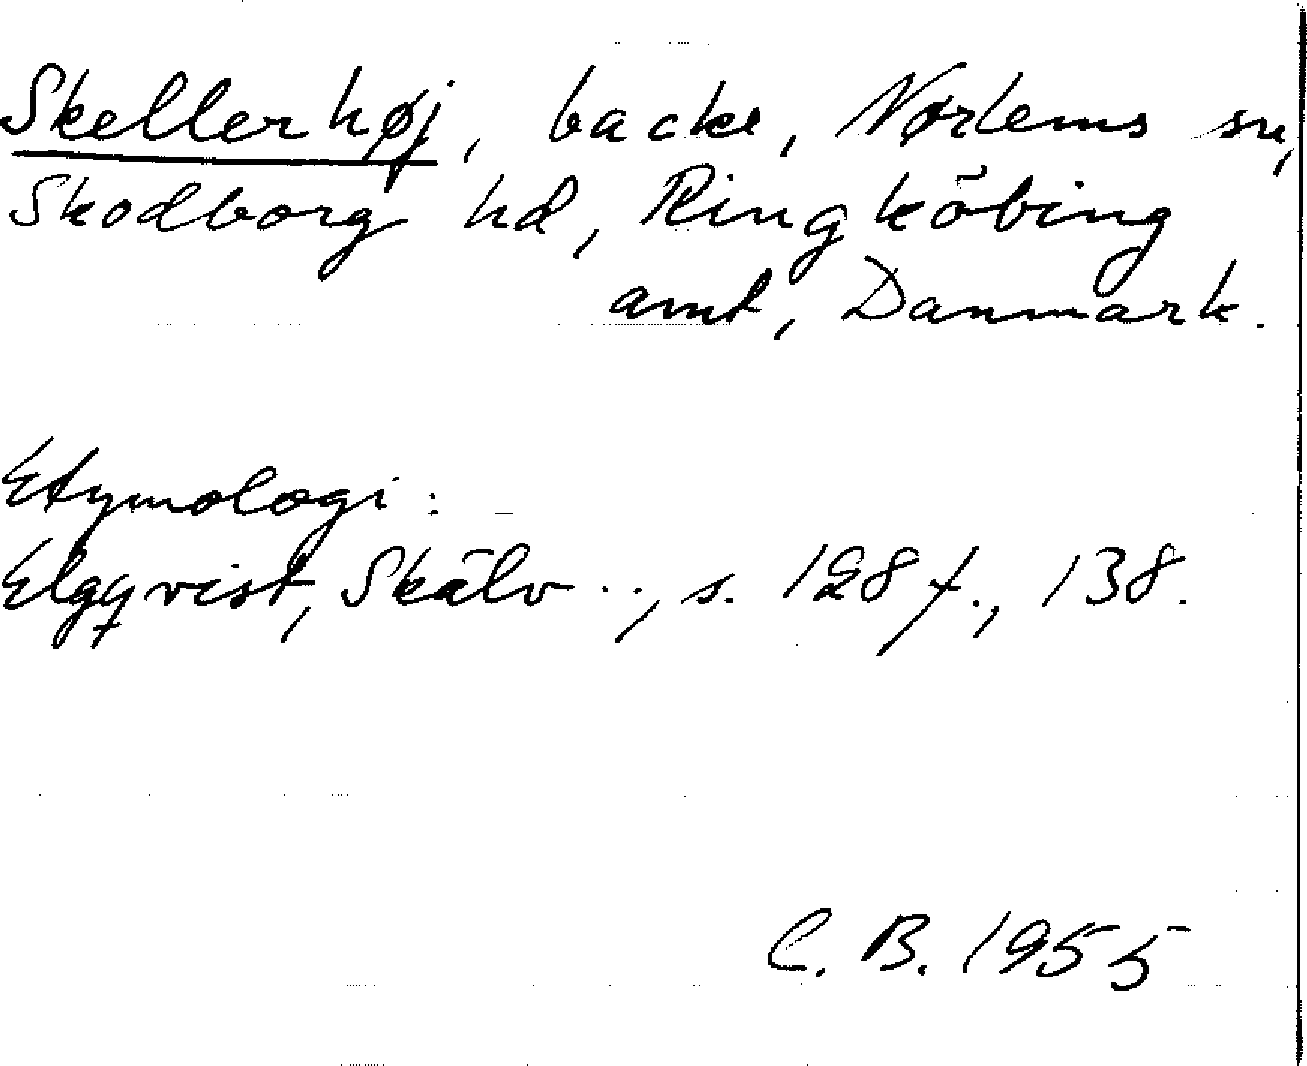 Skellerhøj, backe, Nørlems sn,
Skodborg hd, Ringköbing
amt, Danmark.
Etymologi:
Elgqvist, Skälv..., s. 128 f., 138.
C. B. 1955